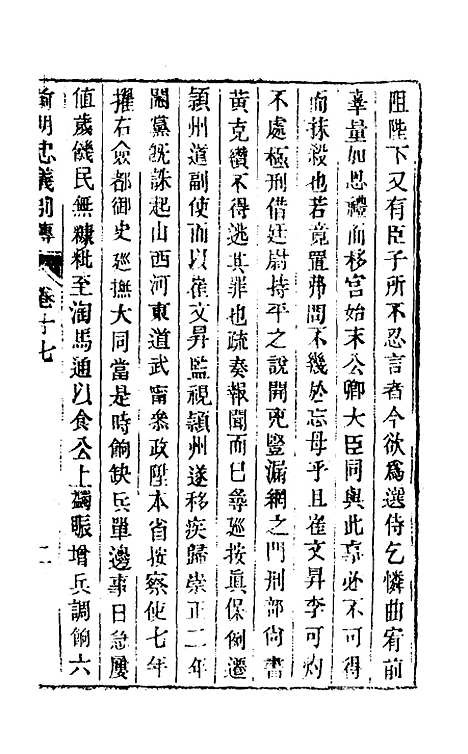 阻陛下又有臣子所不忍言者今欲爲選侍乞憐曲宥前
辜量加恩禮而移宮始末公卿大臣同與此事必不可得
而抹殺也若竟置弗問不幾於忘母乎且崔文昇李可灼
不處極刑借廷尉持平之說開兇豎漏網之門刑部尙書
黄克纘不得逃其罪也疏奏報聞而已尋廵按眞保例遷
頴州道副使而以崔文昇監視頴州遂移疾歸崇正二年
閹黨旣誅起山西河東道武甯叅政陞本省按察使七年
擢右僉都御史廵撫大同當是時餉缺兵單邊事日急屢
値歲饑民無糠粃至淘馬通以食公上蠲賑增兵調餉六
前明忠義別傳 卷十七 二